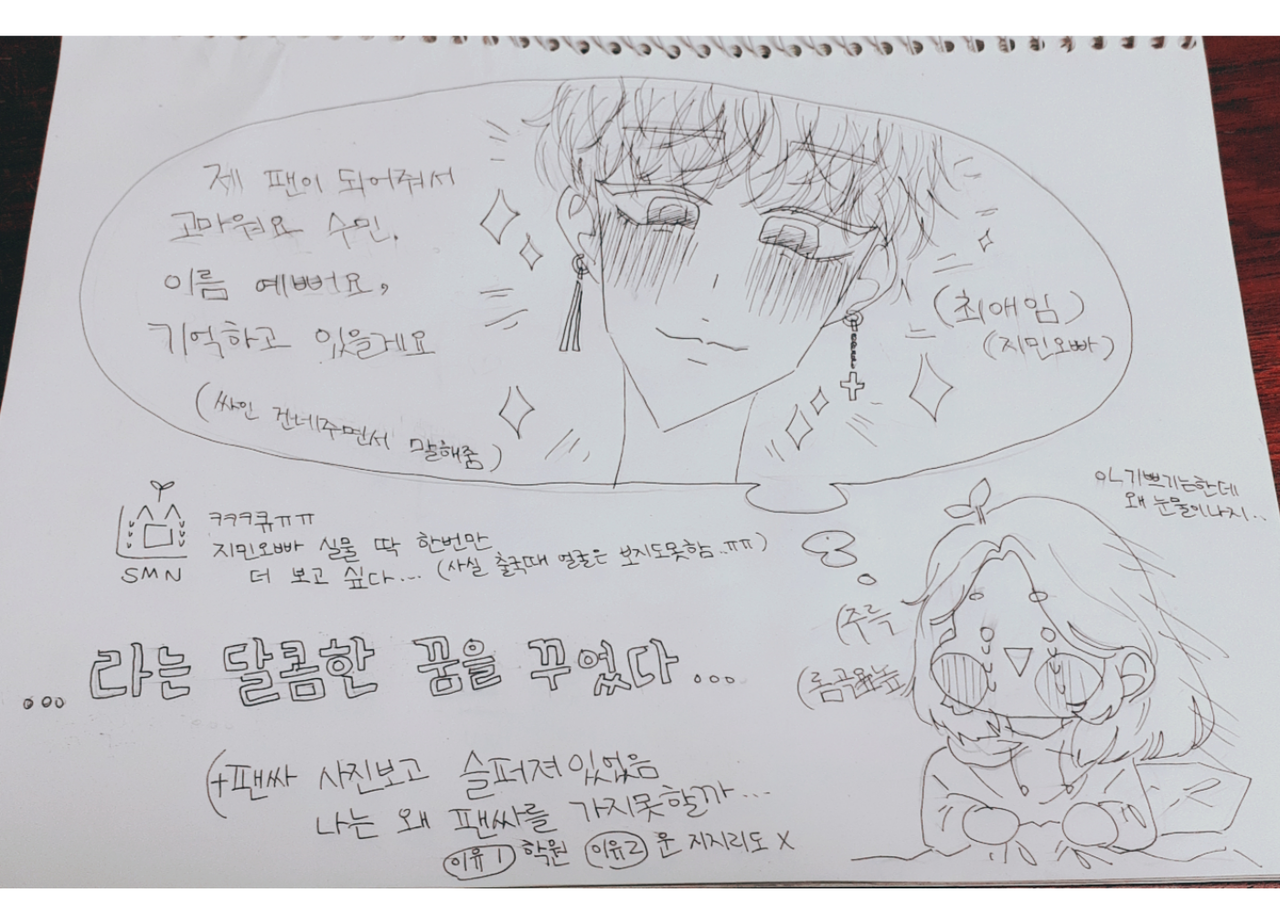 제 팬이 되어줘서
고마워요 수민,
이름 예뻐요,
기억하고 있을게요
(싸인 건네주면서 말해줌)
(최애임)
(지민오빠)
아.. 기쁘기는한데
왜 눈물이나지..
SMN
ㅋㅋㅋ큐ㅠㅠ
지민오빠 실물 딱 한번만
더 보고 싶다... (사실 출국때 얼굴은 보지도못함..ㅠㅠ)
(주륵
(롬곡옾눞)
... 라는 달콤한 꿈을 꾸였다...
(+팬싸 사진보고 슬퍼져있었음
나는 왜 팬싸를 가지못할까...
이유1 학원 이유2 운 지지리도 X